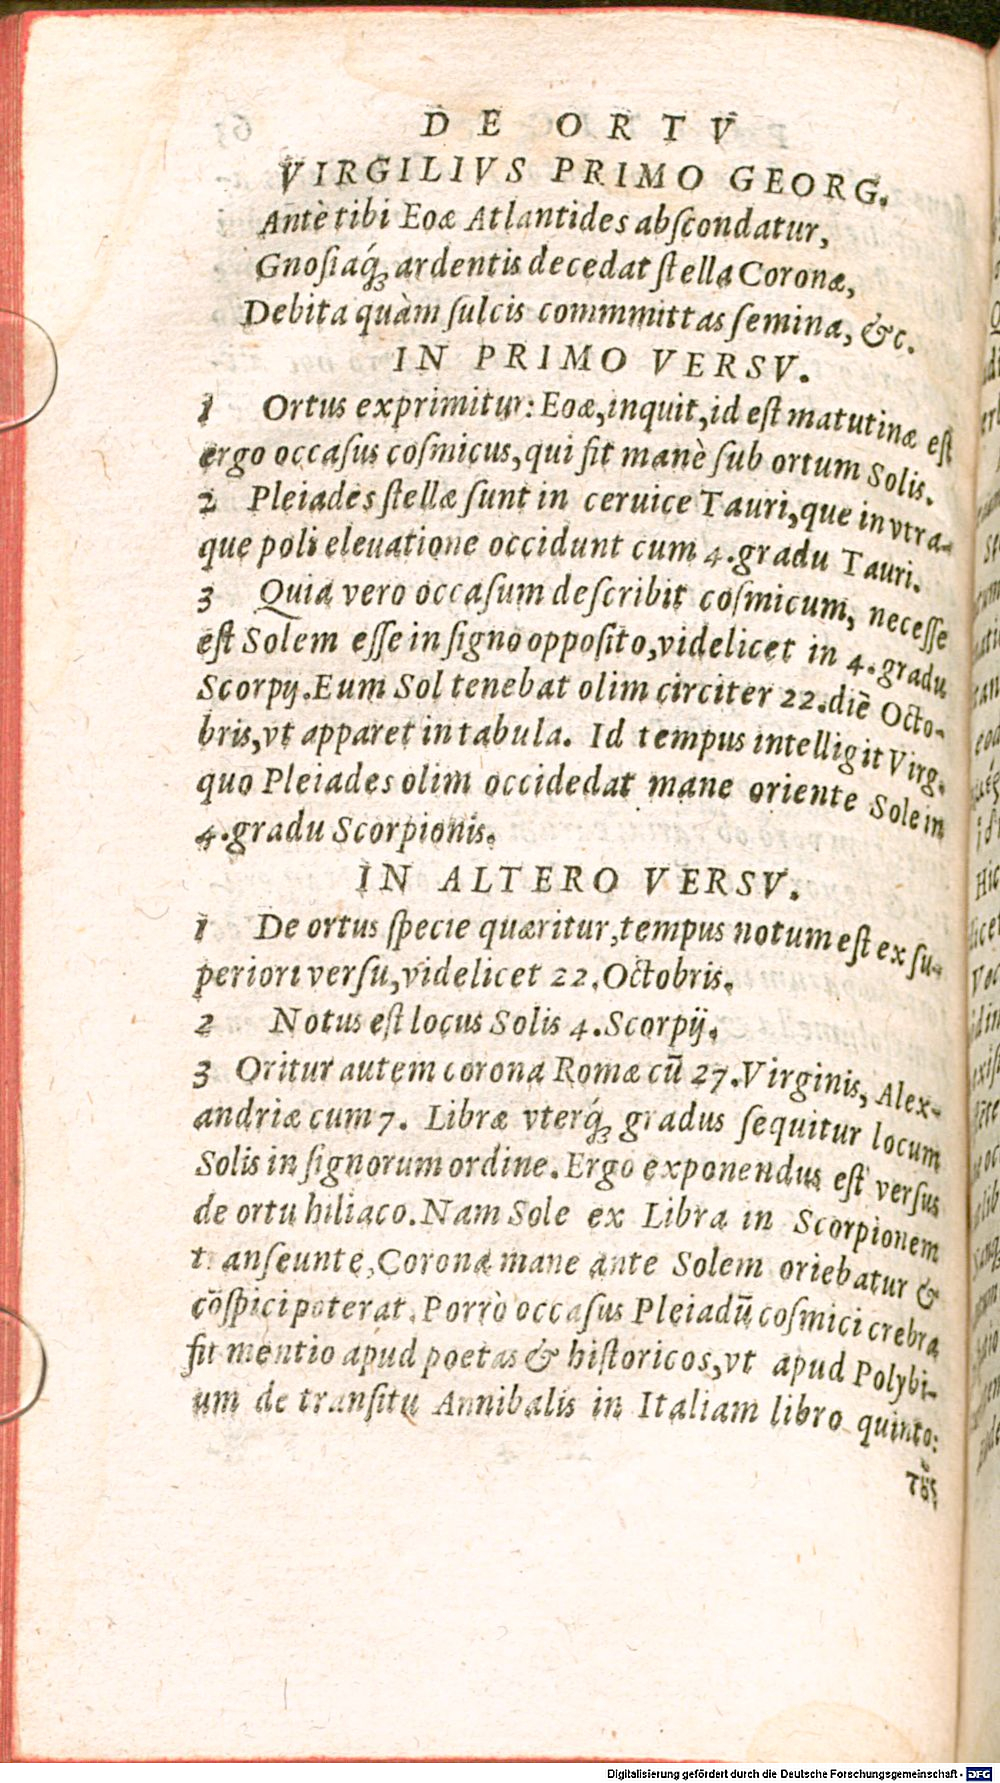 DE ORTV
VIRGILIVS PRIMO GEORG.
Antè tibi Eoæ Atlantides abſcondatur,
Gnoſiaq́; ardentis decedat ſtella Coronæ,
Debita quàm ſulcis commmittas ſemina, &c.
IN PRIMO VERSV.
1 Ortus exprimitur: Eoæ, inquit, id eſt matutinæ eſt
ergo occaſus coſmicus, qui fit manè ſub ortum Solis.
2 Pleiades ſtellæ ſunt in ceruice Tauri, que in vtra-
que poli eleuatione occidunt cum 4. gradu Tauri.
3 Quia vero occaſum deſcribit coſmicum, neceſſe
eſt Solem eſſe in ſigno oppoſito, videlicet in 4. gradu
Scorpij. Eum Sol tenebat olim circiter 22. diē Octo-
bris, vt apparet in tabula. Id tempus intelligit Virg.
quo Pleiades olim occidedat mane oriente Sole in
4. gradu Scorpionis.
IN ALTERO VERSV.
1 De ortus ſpecie quæritur, tempus notum eſt ex ſu-
periori verſu, videlicet 22. Octobris.
2 Notus eſt locus Solis 4. Scorpij.
3 Oritur autem corona Romæ cū 27. Virginis, Alex-
andriæ cum 7. Libræ vterq́; gradus ſequitur locum
Solis in ſignorum ordine. Ergo exponendus eſt verſus
de ortu hiliaco. Nam Sole ex Libra in Scorpionem
tranſeunte, Corona mane ante Solem oriebatur &
cōſpici poterat. Porrò occaſus Pleiadū coſmici crebra
fit mentio apud poetas & hiſtoricos, vt apud Polybi-
um de tranſitu Annibalis in Italiam libro quinto:
Digitalisierung gefördert durch die Deutsche Forschungsgemeinschaft - DFG